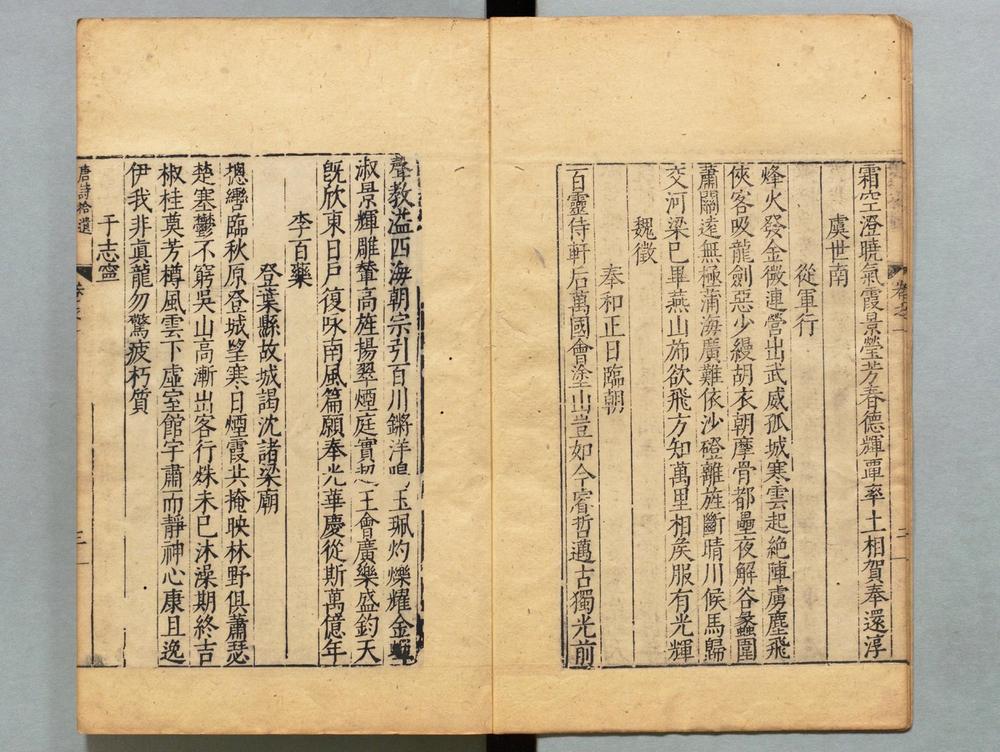 霜空澄曉氣霞景瑩芳春德輝覃率土相賀奉還淳
虞世南
從軍行
烽火發金微連營出武威孤城寒雲起絕陣虜塵飛
俠客吸龍劍惡少縵胡衣朝摩骨都壘夜解谷蠡圍
蕭關遠無極蒲海廣難依沙磴離旌斷晴川候馬歸
交河梁已畢燕山旆欲飛方知萬里相矦服有光輝
魏徵
奉和正日臨朝
百靈侍軒后萬國會塗山豈如今睿哲邁古獨光前
聲教溢四海朝宗引百川鏘洋鳴玉珮灼爍耀金蟬
淑景輝雕輦高旌揚翠煙庭實超王會廣樂盛鈞天
旣欣東日戶復咏南風篇願奉光華慶從斯萬億年
李百藥
登葉縣故城謁沈諸梁廟
摠轡臨秋原登城望寒日煙霞共掩映林野俱蕭瑟
楚塞鬱不窮吳山高漸出客行殊未已沐澡期終吉
椒桂奠芳樽風雲下虛室館宇肅而靜神心康且逸
伊我非眞龍勿驚疲朽質
于志寧
唐詩拾遺
卷之一
三